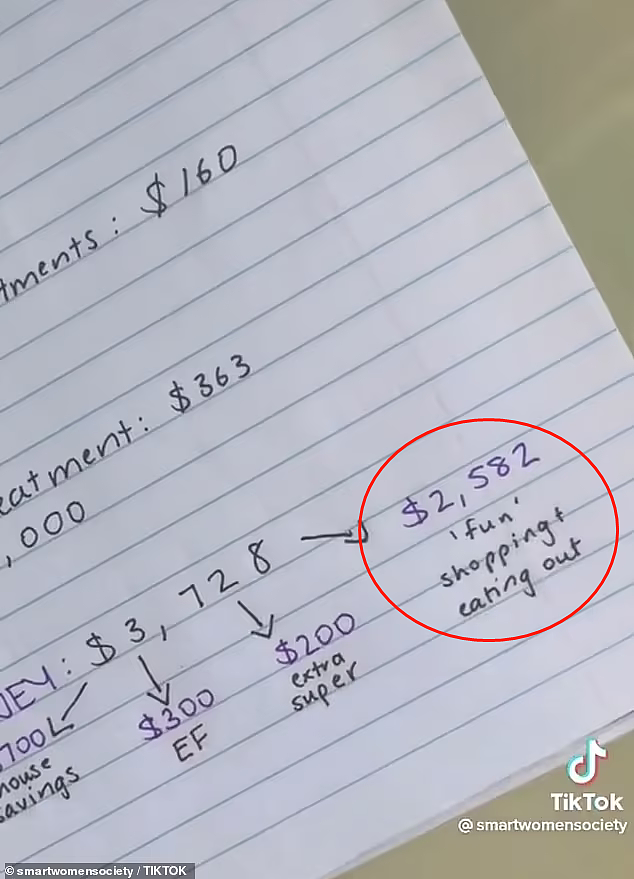 tments: $160
eatment: $363
,000
NEY: $3,728
$2,582
'fun'
shopping +
eating out
$200
extra
super
$300
EF
700
house
savings
TikTok
@smartwomensociety
© smartwomensociety / TIKTOK